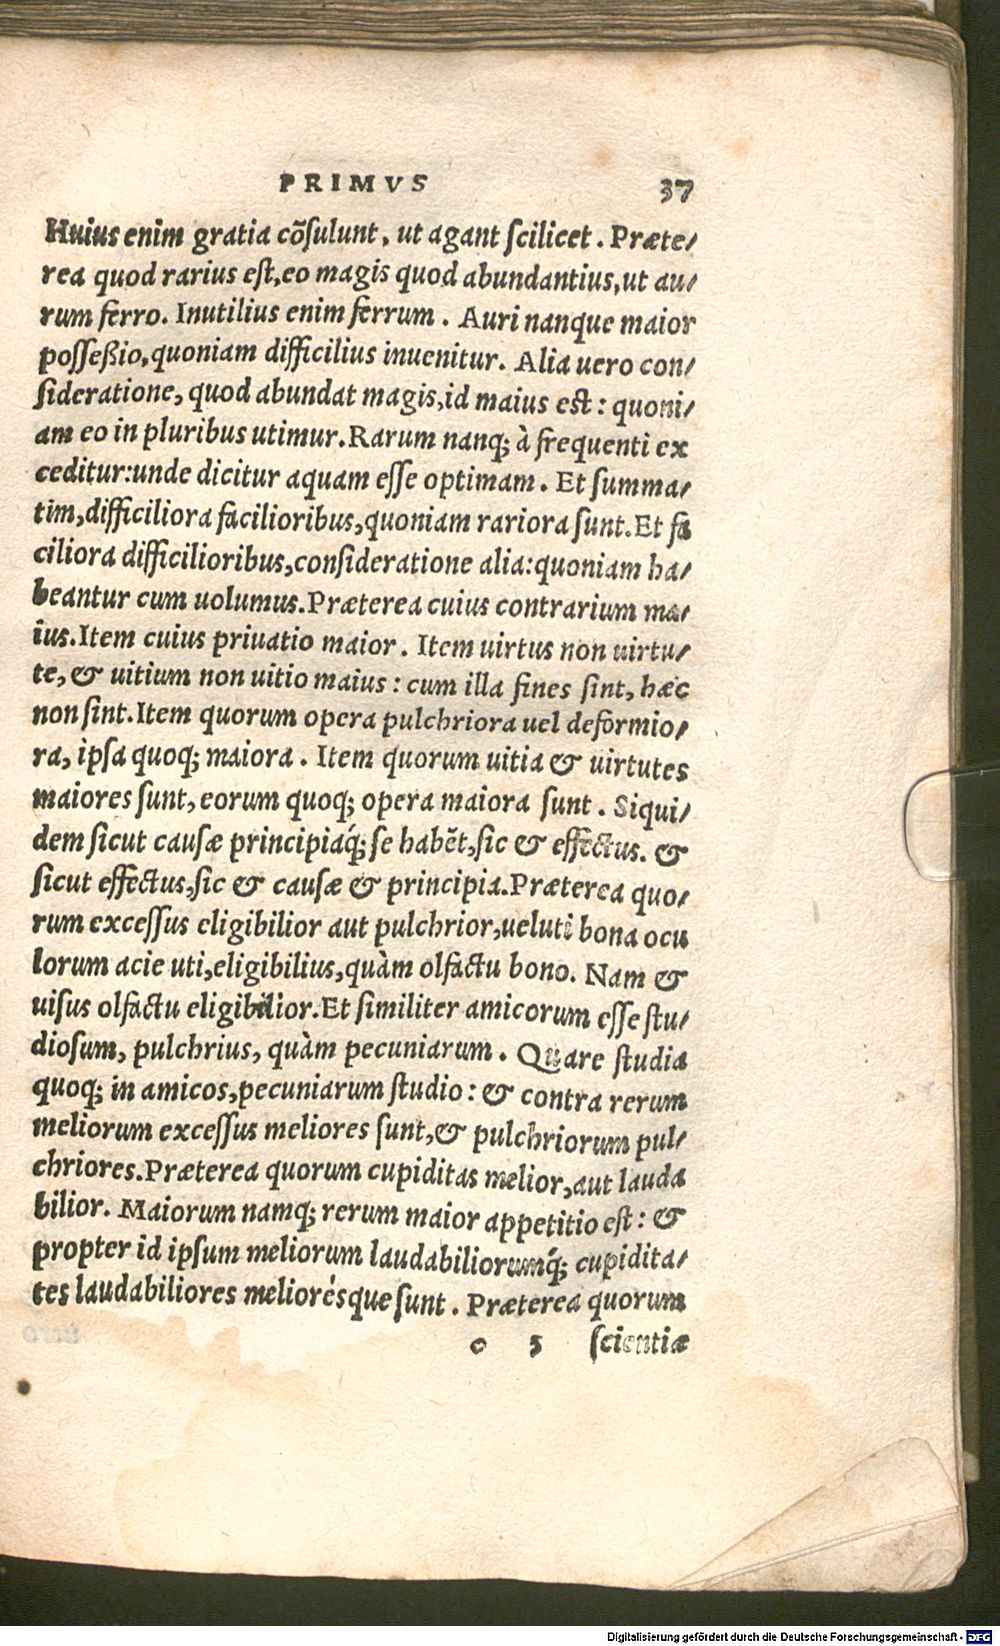 PRIMVS 37
Huius enim gratia cõsulunt, ut agant scilicet. Præte/
rea quod rarius est, eo magis quod abundantius, ut au/
rum ferro. Inutilius enim ferrum. Auri nanque maior
posseßio, quoniam difficilius inuenitur. Alia uero con/
sideratione, quod abundat magis, id maius est: quoni/
am eo in pluribus utimur. Rarum nanq; à frequenti ex
ceditur: unde dicitur aquam esse optimam. Et summa/
tim, difficiliora facilioribus, quoniam rariora sunt. Et fa
ciliora difficilioribus, consideratione alia: quoniam ha/
beantur cum uolumus. Præterea cuius contrarium ma/
ius. Item cuius priuatio maior. Item uirtus non uirtu/
te, & uitium non uitio maius: cum illa fines sint, hæc
non sint. Item quorum opera pulchriora uel deformio/
ra, ipsa quoq; maiora. Item quorum uitia & uirtutes
maiores sunt, eorum quoq; opera maiora sunt. Siqui/
dem sicut causæ principiáq; se habẽt, sic & effectus. &
sicut effectus, sic & causæ & principia. Præterea quo/
rum excessus eligibilior aut pulchrior, ueluti bona ocu
lorum acie uti, eligibilius, quàm olfactu bono. Nam &
uisus olfactu eligibilior. Et similiter amicorum esse stu/
diosum, pulchrius, quàm pecuniarum. Quare studia
quoq; in amicos, pecuniarum studio: & contra rerum
meliorum excessus meliores sunt, & pulchriorum pul/
chriores. Præterea quorum cupiditas melior, aut lauda
bilior. Maiorum namq; rerum maior appetitio est: &
propter id ipsum meliorum laudabiliorumq́; cupidita/
tes laudabiliores melioresque sunt. Præterea quorum
o 5 scientiæ
Digitalisierung gefördert durch die Deutsche Forschungsgemeinschaft - DFG